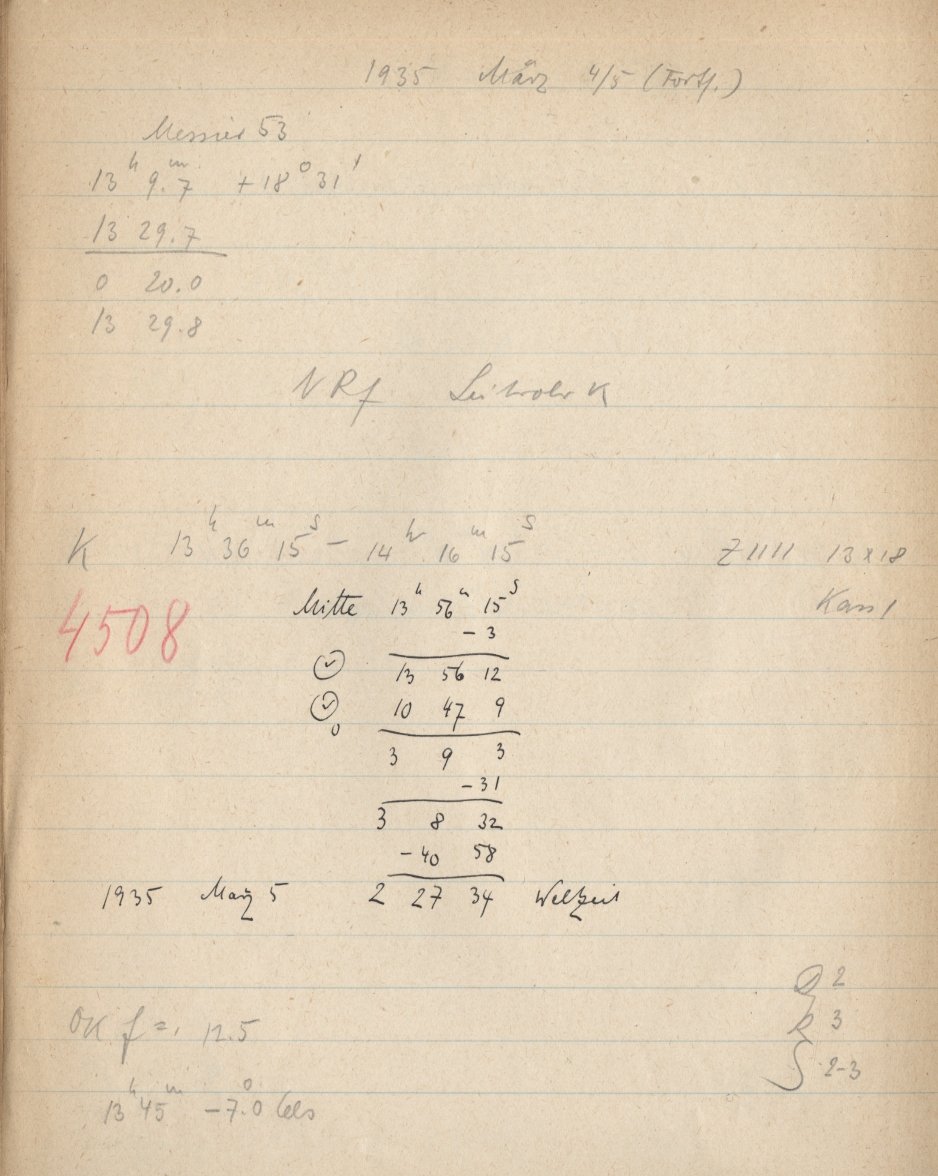 1935 März 4/5 (Forts.)
Messier 53
13ʰ 9.ᵐ7 +18° 31'
13 29.7
0 20.0
13 29.8
NRf Leitrohr K
K 13ʰ 36ᵐ 15ˢ – 14ʰ 16ᵐ 15ˢ Z 1111 13x18
Kass 1
4508
Mitte 13ʰ 56ᵐ 15ˢ
– 3
13 56 12
10 47 9
0
3 9 3
– 31
3 8 32
– 40 58
1935 März 5 2 27 34 Weltzeit
2
OK f = 12.5
k 3
S 2-3
13ʰ 45ᵐ –7.°0 Cels